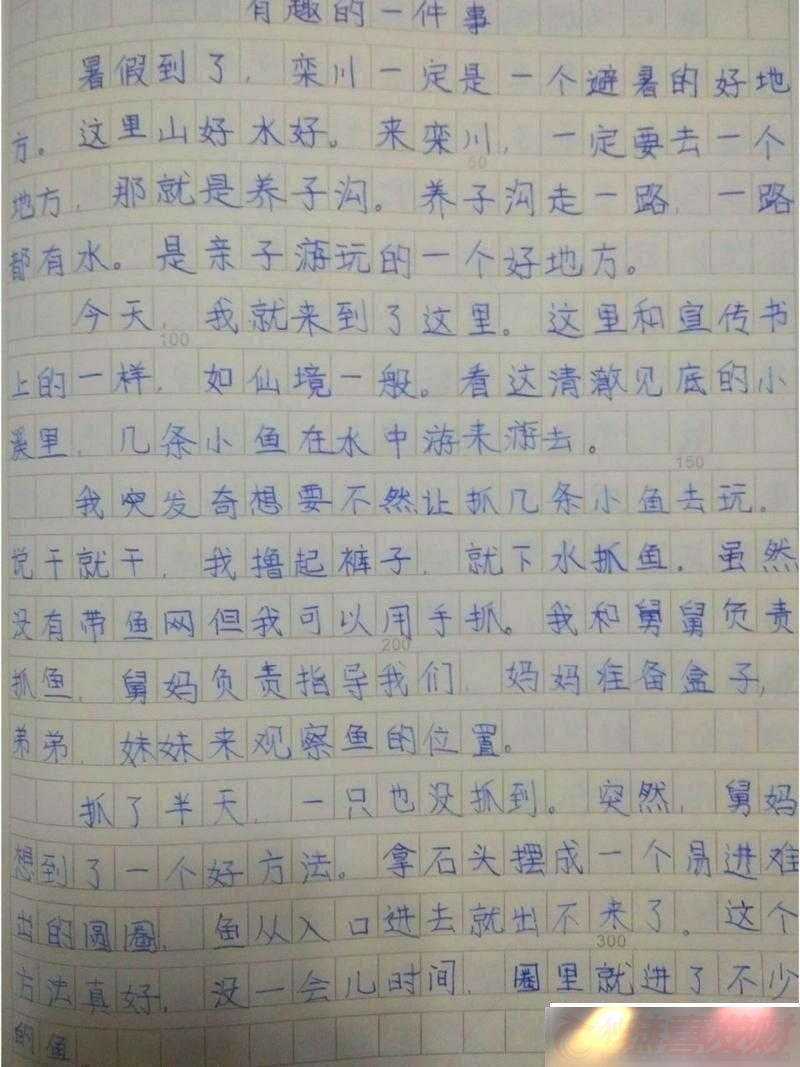 有趣的一件事
暑假到了，栾川一定是一个避暑的好地
方。这里山好水好。来栾川，一定要去一个
地方，那就是养子沟。养子沟走一路，一路
都有水。是亲子游玩的一个好地方。
今天，我就来到了这里。这里和宣传书
上的一样，如仙境一般。看这清澈见底的小
溪里，几条小鱼在水中游来游去。
我突发奇想要不然让抓几条小鱼去玩。
说干就干，我撸起裤子，就下水抓鱼。虽然
没有带鱼网但我可以用手抓。我和舅舅负责
抓鱼，舅妈负责指导我们，妈妈准备盒子，
弟弟，妹妹来观察鱼的位置。
抓了半天，一只也没抓到。突然，舅妈
想到了一个好方法。拿石头摆成一个易进难
出的圆圈，鱼从入口进去就出不来了。这个
方法真好，没一会儿时间，圈里就进了不少
的鱼
50
100
150
200
300